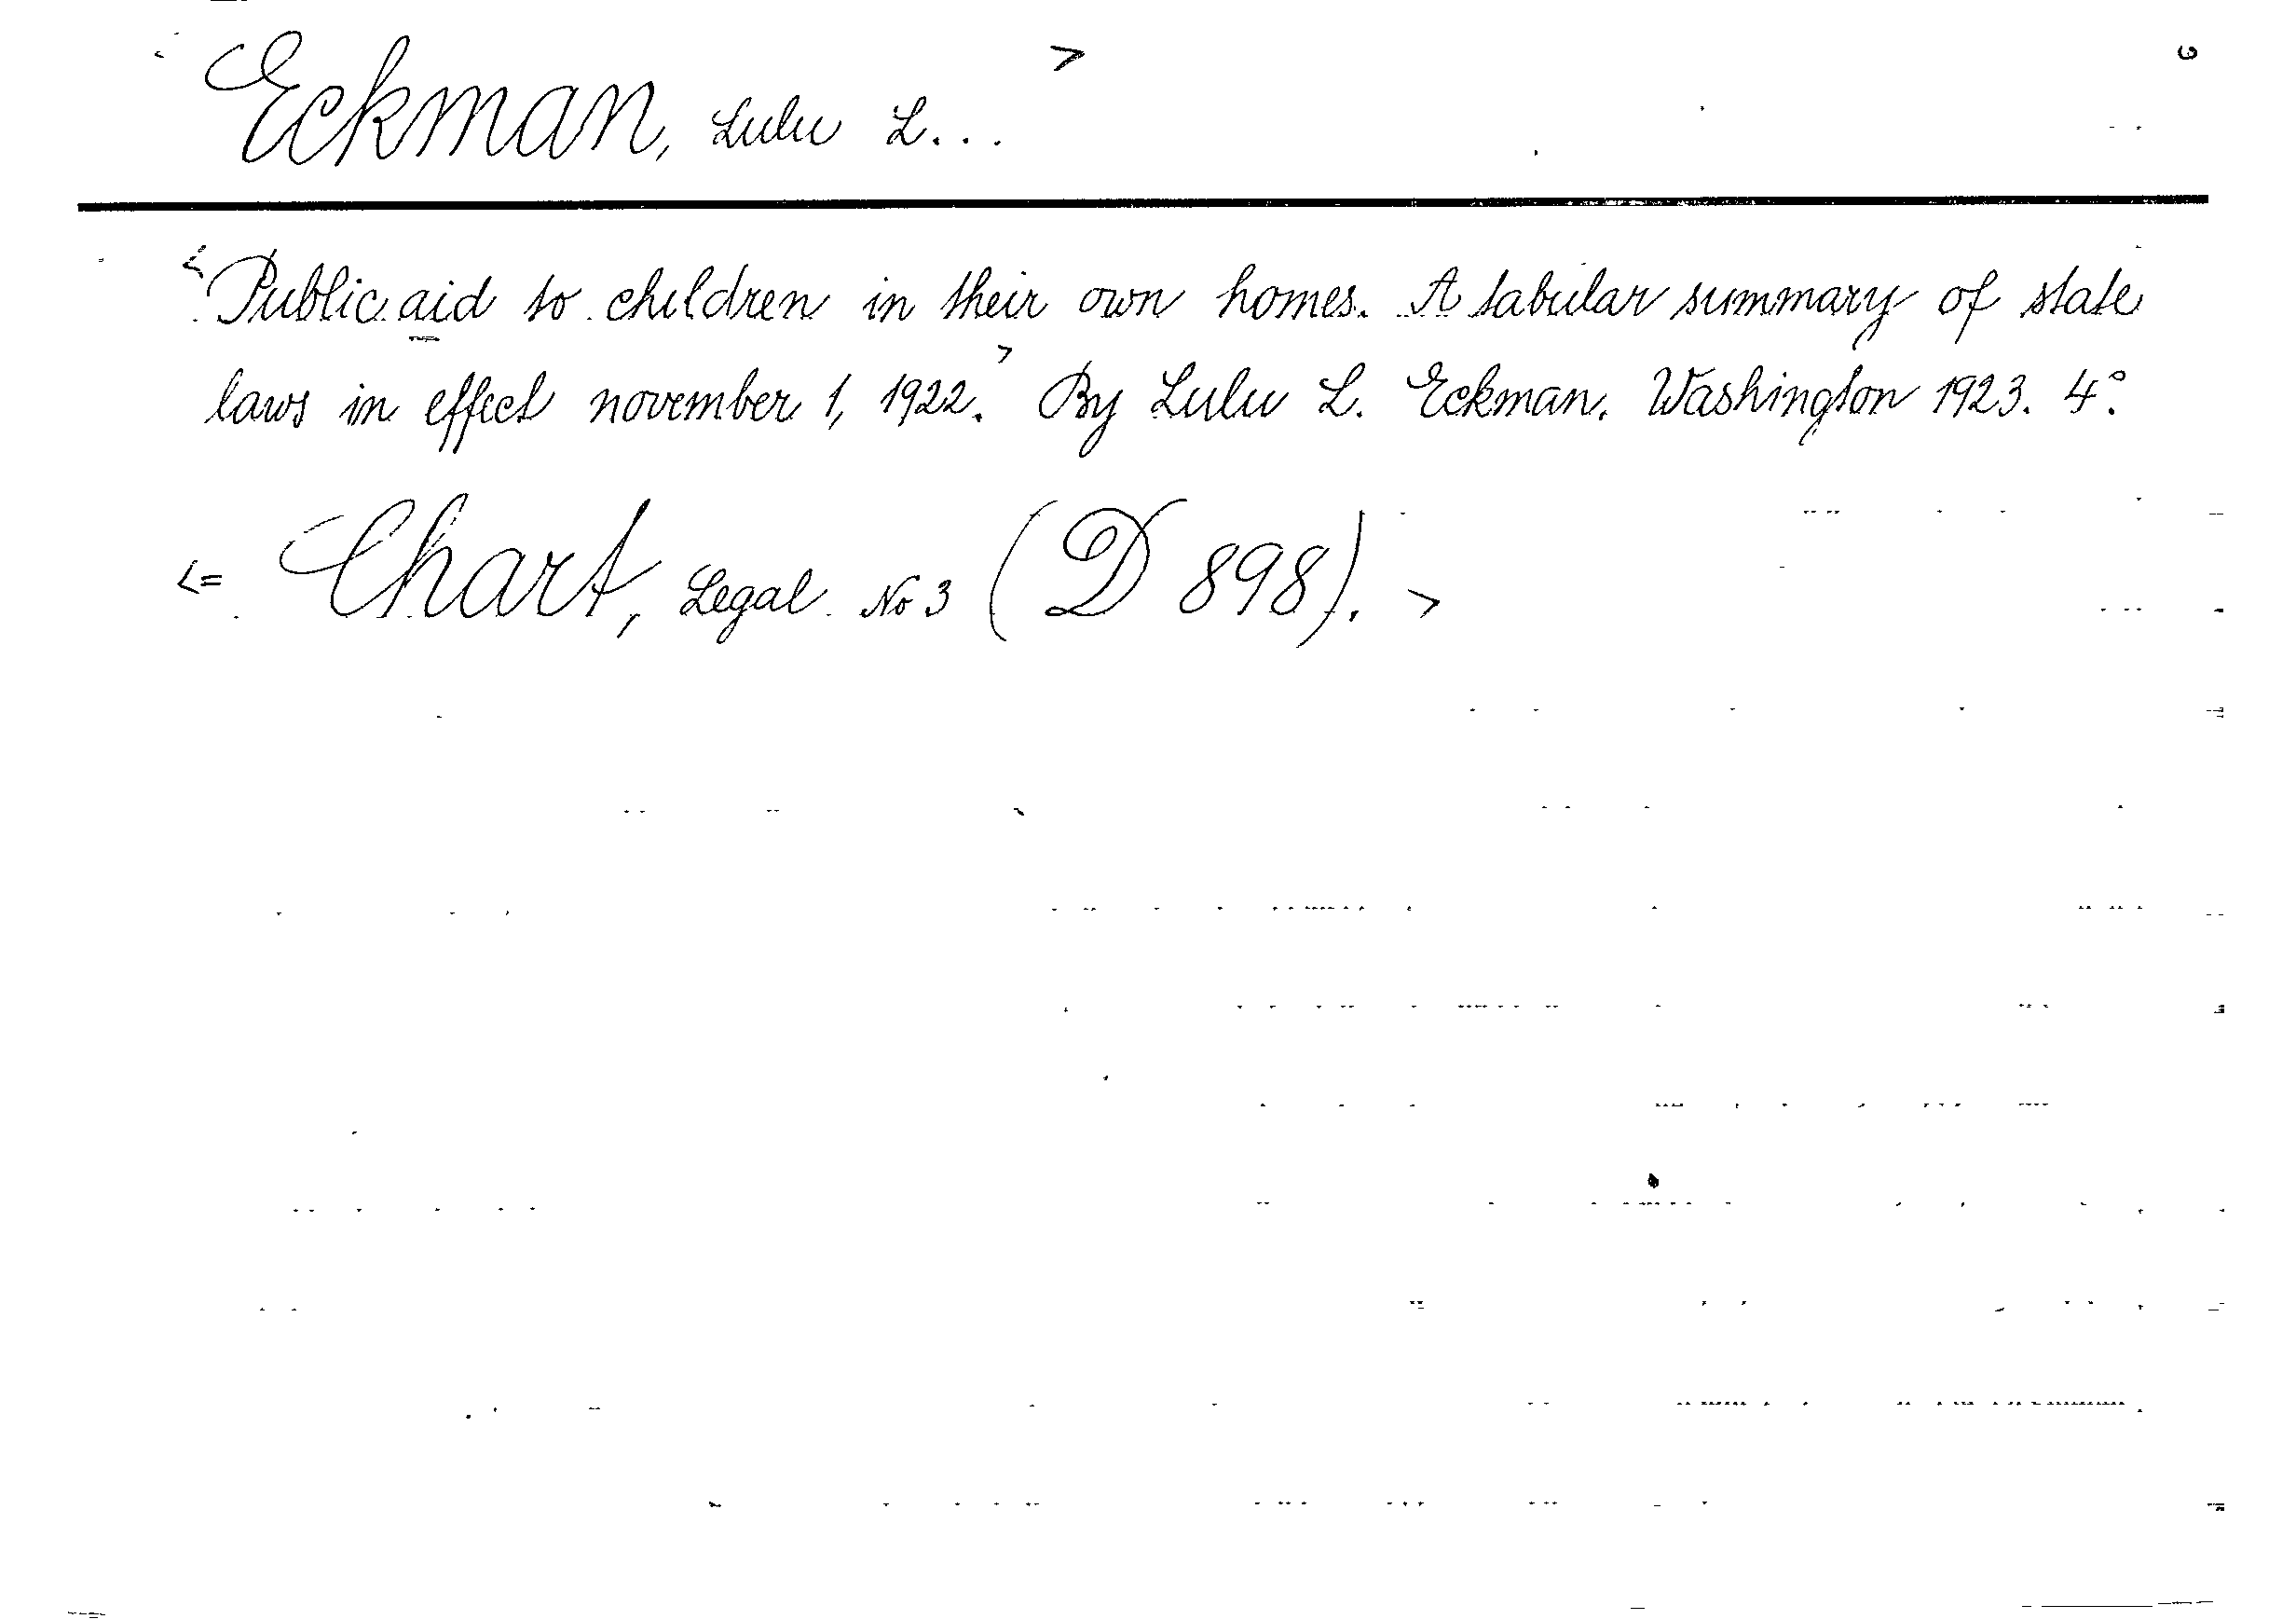 Eckman, Lulu L... >
<Public aid to children in their own homes. A tabular summary of state
laws in effect november 1, 1922.> By Lulu L. Eckman. Washington 1923. 4:o
<= Chart, Legal No 3 (D 898). >